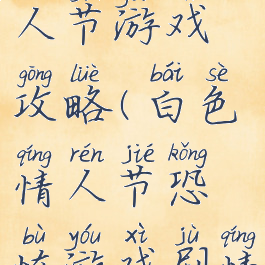 人节游戏
gōng lüè bái sè
攻略(白色
qíng rén jié kǒng
情人节恐
bù yóu xì jù qíng
怖游戏剧情